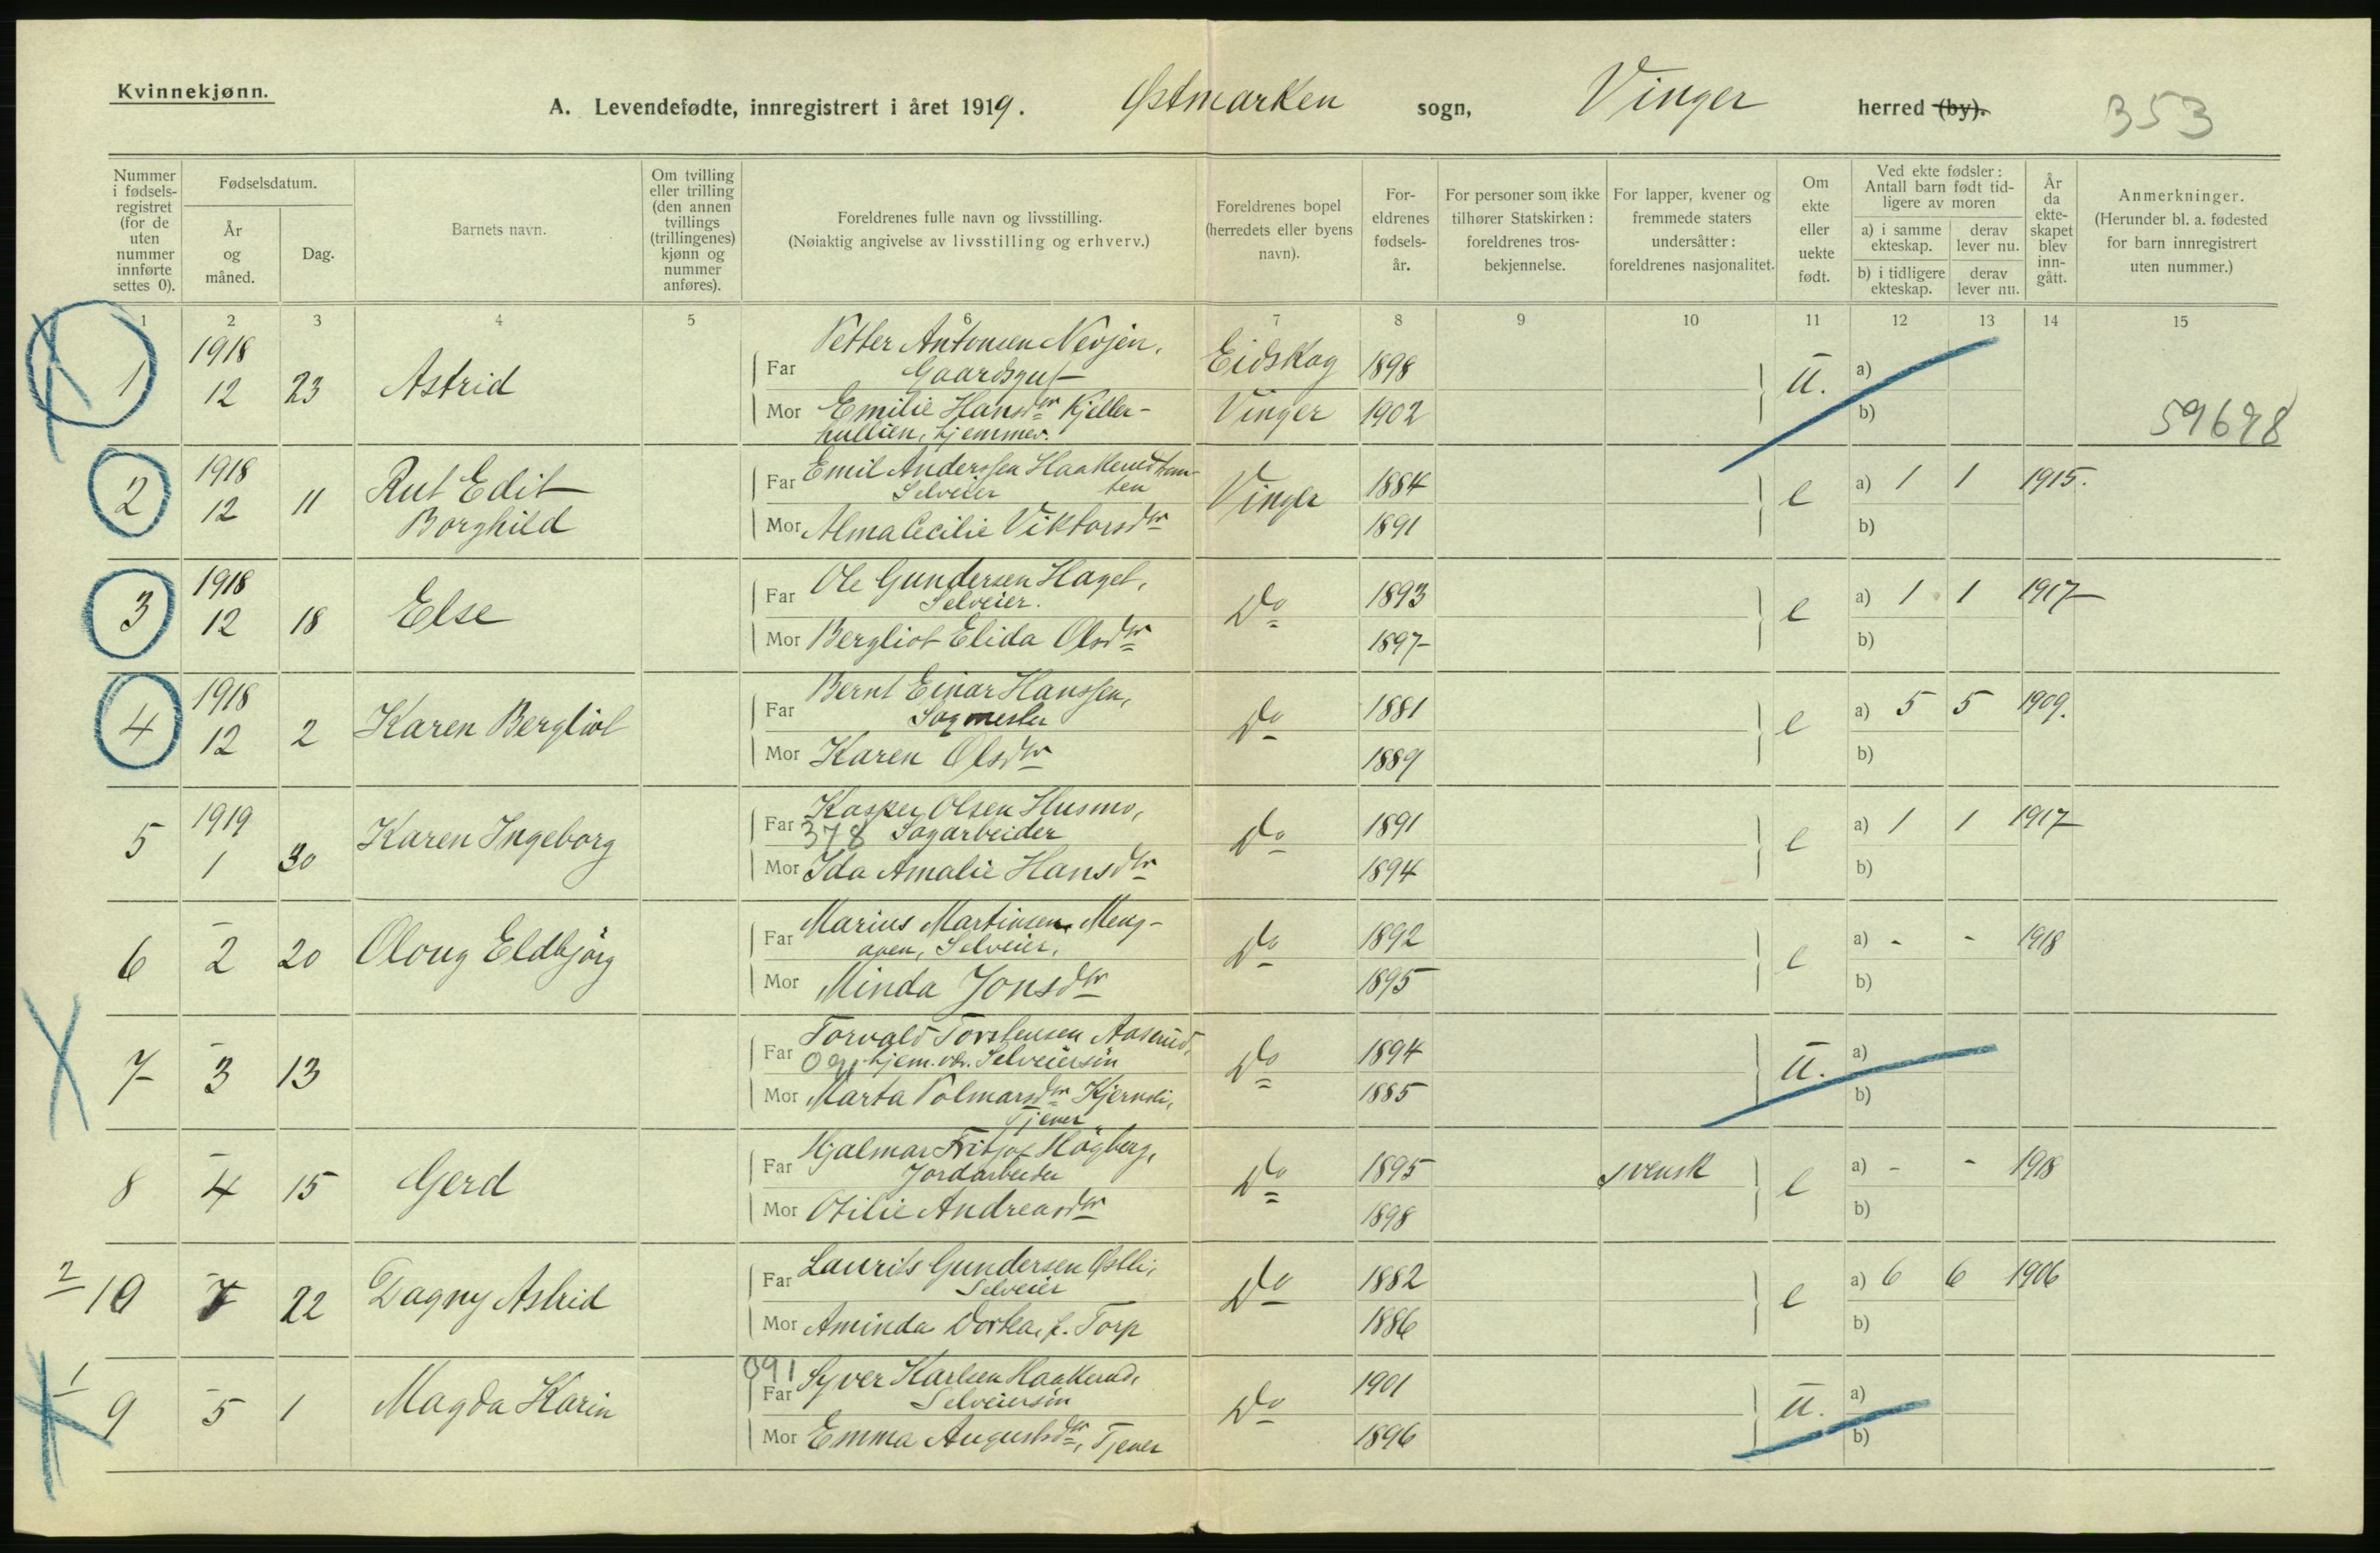 Kvinnekjønn.
A. Levendefødte, innregistrert i året 1919. Østmarken sogn, Vinger herred (by). 353
Nummer i fødsels-registret (for de uten nummer innførte settes 0).
Fødselsdatum.
År og måned.
Dag.
Barnets navn.
Om tvilling eller trilling (den annen tvillings (trillingenes) kjønn og nummer anføres).
Foreldrenes fulle navn og livsstilling.
(Nøiaktig angivelse av livsstilling og erhverv.)
Foreldrenes bopel (herredets eller byens navn).
For-eldrenes fødsels-år.
For personer som ikke tilhører Statskirken: foreldrenes tros-bekjennelse.
For lapper, kvener og fremmede staters undersåtter: foreldrenes nasjonalitet.
Om ekte eller uekte født.
Ved ekte fødsler: Antall barn født tid-ligere av moren
a) i samme ekteskap.
derav lever nu.
b) i tidligere ekteskap.
derav lever nu.
År da ekte-skapet blev inn-gått.
Anmerkninger.
(Herunder bl. a. fødested for barn innregistrert uten nummer.)
1 2 3 4 5 6 7 8 9 10 11 12 13 14 15
1 1918 12 23 Astrid
Far Petter Antonsen Nevjen, Gaardsgut Eidskog 1898 U. a)
Mor Emilie Hansdtr Kjeller-hullien, hjemmev. Vinger 1902 b) 59678
2 1918 12 11 Rut Edit Borghild
Far Emil Anderssen Selveier Vinger 1884 e a) 1 1 1915.
Mor Alma Cecilie Viktorsdtr 1891 b)
3 1918 12 18 Else
Far Ole Gundersen Haget, Selveier. Do 1893 e a) 1 1 1917
Mor Bergliot Elida Olsdtr 1897 b)
4 1918 12 2 Karen Bergliot
Far Bernt Einar Hanssen, Sagmester Do 1881 e a) 5 5 1909.
Mor Karen Olsdtr 1889 b)
5 1919 1 30 Karen Ingeborg
Far Kasper Olsen Husmo, 378 Sagarbeider Do 1891 e a) 1 1 1917
Mor Ida Amalie Hansdtr 1894 b)
6 - 2 20 Oloug Eldbjörg
Far Marius Martinsen Meng-aaen, Selveier, Do 1892 e a) - - 1918
Mor Minda Jonsdtr 1895 b)
7 - 3 13
Far Torvald Torstensen Aaserud, hjem.vær. Selveiersön Do 1894 U. a)
Mor Marta Volmarsdtr Kjernsli, Tjener 1885 b)
8 - 4 15 Gerd
Far Hjalmar Fritjof Högberg, Jordarbeider Do 1895 svensk e a) - - 1918
Mor Otilie Andreasdtr 1898 b)
2 10 - 7 22 Dagny Astrid
Far Laurits Gundersen Østli, Selveier Do 1882 e a) 6 6 1906
Mor Aminda Dortea f. Torp 1886 b)
1 9 - 5 1 Magda Karin
091 Far Syver Karlsen Haakerud, Selveiersön Do 1901 U. a)
Mor Emma Augustsdtr, Tjener 1896 b)